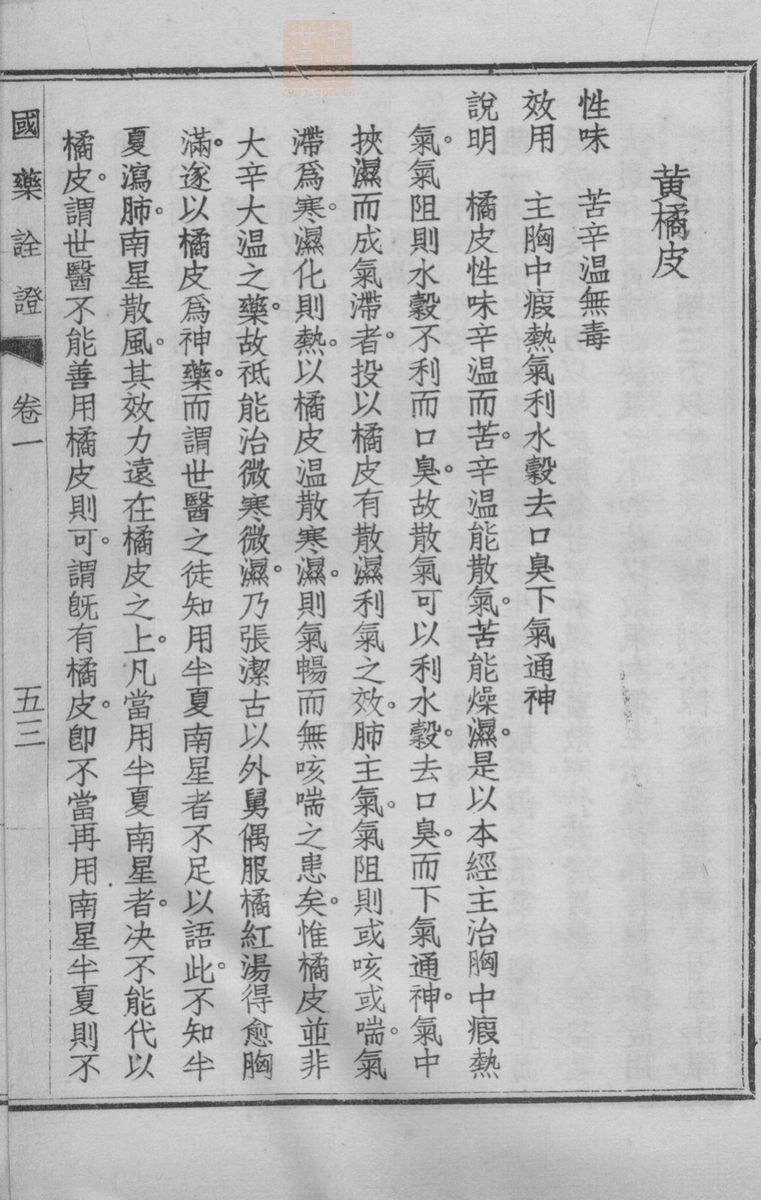 黄橘皮
性味　苦辛温無毒
效用　主胸中瘕熱氣利水穀去口臭下氣通神
說明　橘皮性味辛温而苦。辛温能散氣。苦能燥濕。是以本經主治胸中瘕熱
氣。氣阻則水穀不利而口臭。故散氣可以利水穀。去口臭。而下氣通神。氣中
挾濕而成氣滯者。投以橘皮有散濕利氣之效。肺主氣。氣阻則或咳或喘。氣
滯爲寒。濕化則熱。以橘皮温散寒濕。則氣暢而無咳喘之患矣。惟橘皮並非
大辛大温之藥。故祗能治微寒微濕。乃張潔古以外舅偶服橘紅湯得愈胸
滿。遂以橘皮爲神藥。而謂世醫之徒知用半夏南星者不足以語此。不知半
夏瀉肺。南星散風。其效力遠在橘皮之上。凡當用半夏南星者。决不能代以
橘皮。謂世醫不能善用橘皮則可。謂旣有橘皮。卽不當再用南星半夏則不
國藥詮證　卷一　五三